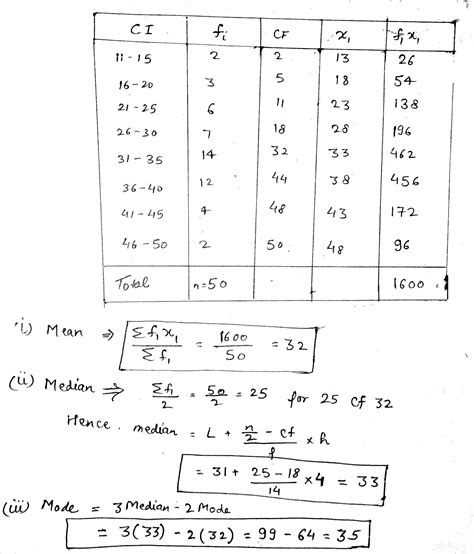 CI fi CF x₁ f₁x₁
11-15 2 2 13 26
16-20 3 5 18 54
21-25 6 11 23 138
26-30 7 18 28 196
31-35 14 32 33 462
36-40 12 44 38 456
41-45 4 48 43 172
46-50 2 50 48 96
Total n=50 1600
(i) Mean ⇒ Σf₁x₁/Σf₁ = 1600/50 = 32
(ii) Median ⇒ Σfi/2 = 50/2 = 25 for 25 cf 32
Hence. median = L + (n/2 - cf)/f × h
= 31 + (25-18)/14 × 4 = 33
(iii) Mode = 3 Median - 2 Mode
= 3(33) - 2(32) = 99 - 64 = 35